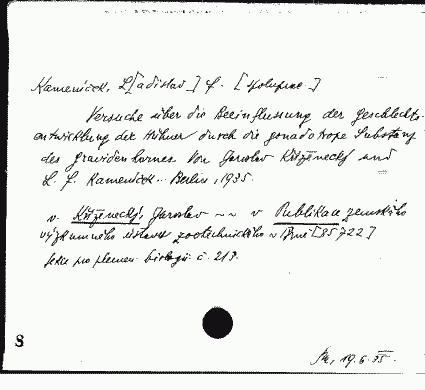 Kameníček, L[adislav] F. [spoluprac.]
Versuche über die Beeinflussung der Geschlechts-
entwicklung der Hühner durch die gonadotrope Substanz
des gravidenharnes. Von Jaroslav Kříženecký und
L. F. Kameníček. Berlin, 1935.
v. Kříženecký, Jaroslav ~~ v Publikace zemského
výzkumného ústavu zootechnického v Brně [85722]
Sekce pro plemen. biologii č. 213.
8
19.6.35.